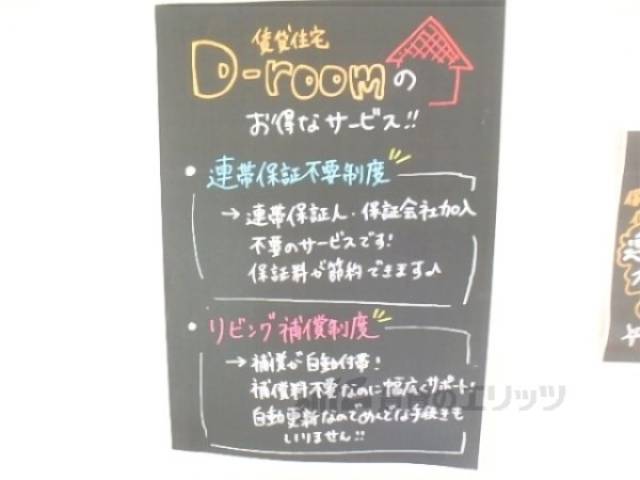 賃貸住宅
D-roomの
お得なサービス!!
・連帯保証不要制度
→連帯保証人・保証会社加入
不要のサービスです!
保証料が節約できます♪
・リビング補償制度
→補償が自動付帯!
補償料不要なのに幅広くサポート!
自動更新なのでめんどな手続きも
いりません!!